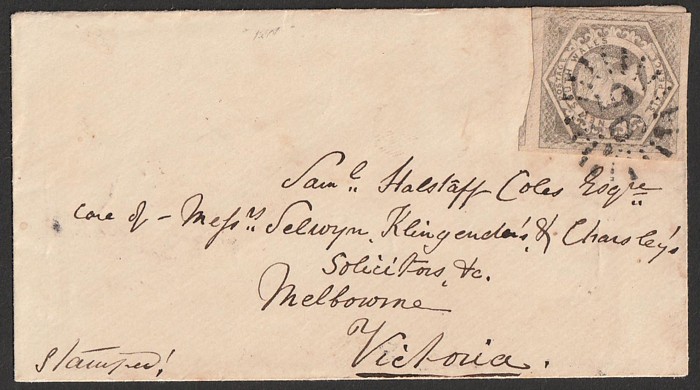 Saml. Halstaff Coles Esqre
care of - Messrs Selwyn, Klingender's & Charsley's
Solicitors, &c.
Melbourne
Victoria.
Stamped!